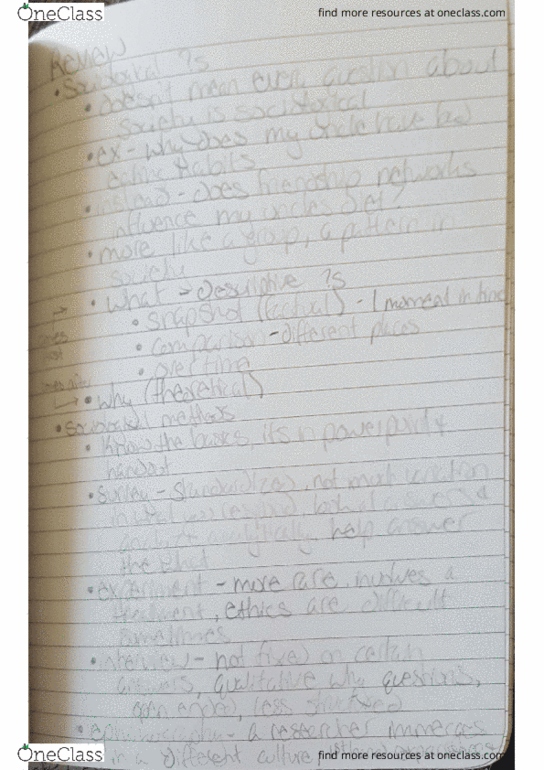 OneClass
find more resources at oneclass.com
Review
• Sociological ?s
• doesn't mean every question about
society is sociological
• ex - why does my uncle have bad
eating habits
• instead - does friendship networks
influence my uncles diet?
• more like a group, a pattern in
society
• what → Descriptive ?s
• snapshot (factual) - 1 moment in time
• comparison - different places
• over time
• why (theoretical)
• sociological methods
• Know the basics, its in powerpoint &
handout
• survey - standardized, not much variation
in what was look at answers &
analytically, help answer
the what
• experiment - more rare, involves a
treatment, ethics are difficult
sometimes
• interview - not fixed on certain
answers, qualitative why questions,
open ended, less structured
• ethnography - a researcher immerses
in a different culture
OneClass
find more resources at oneclass.com